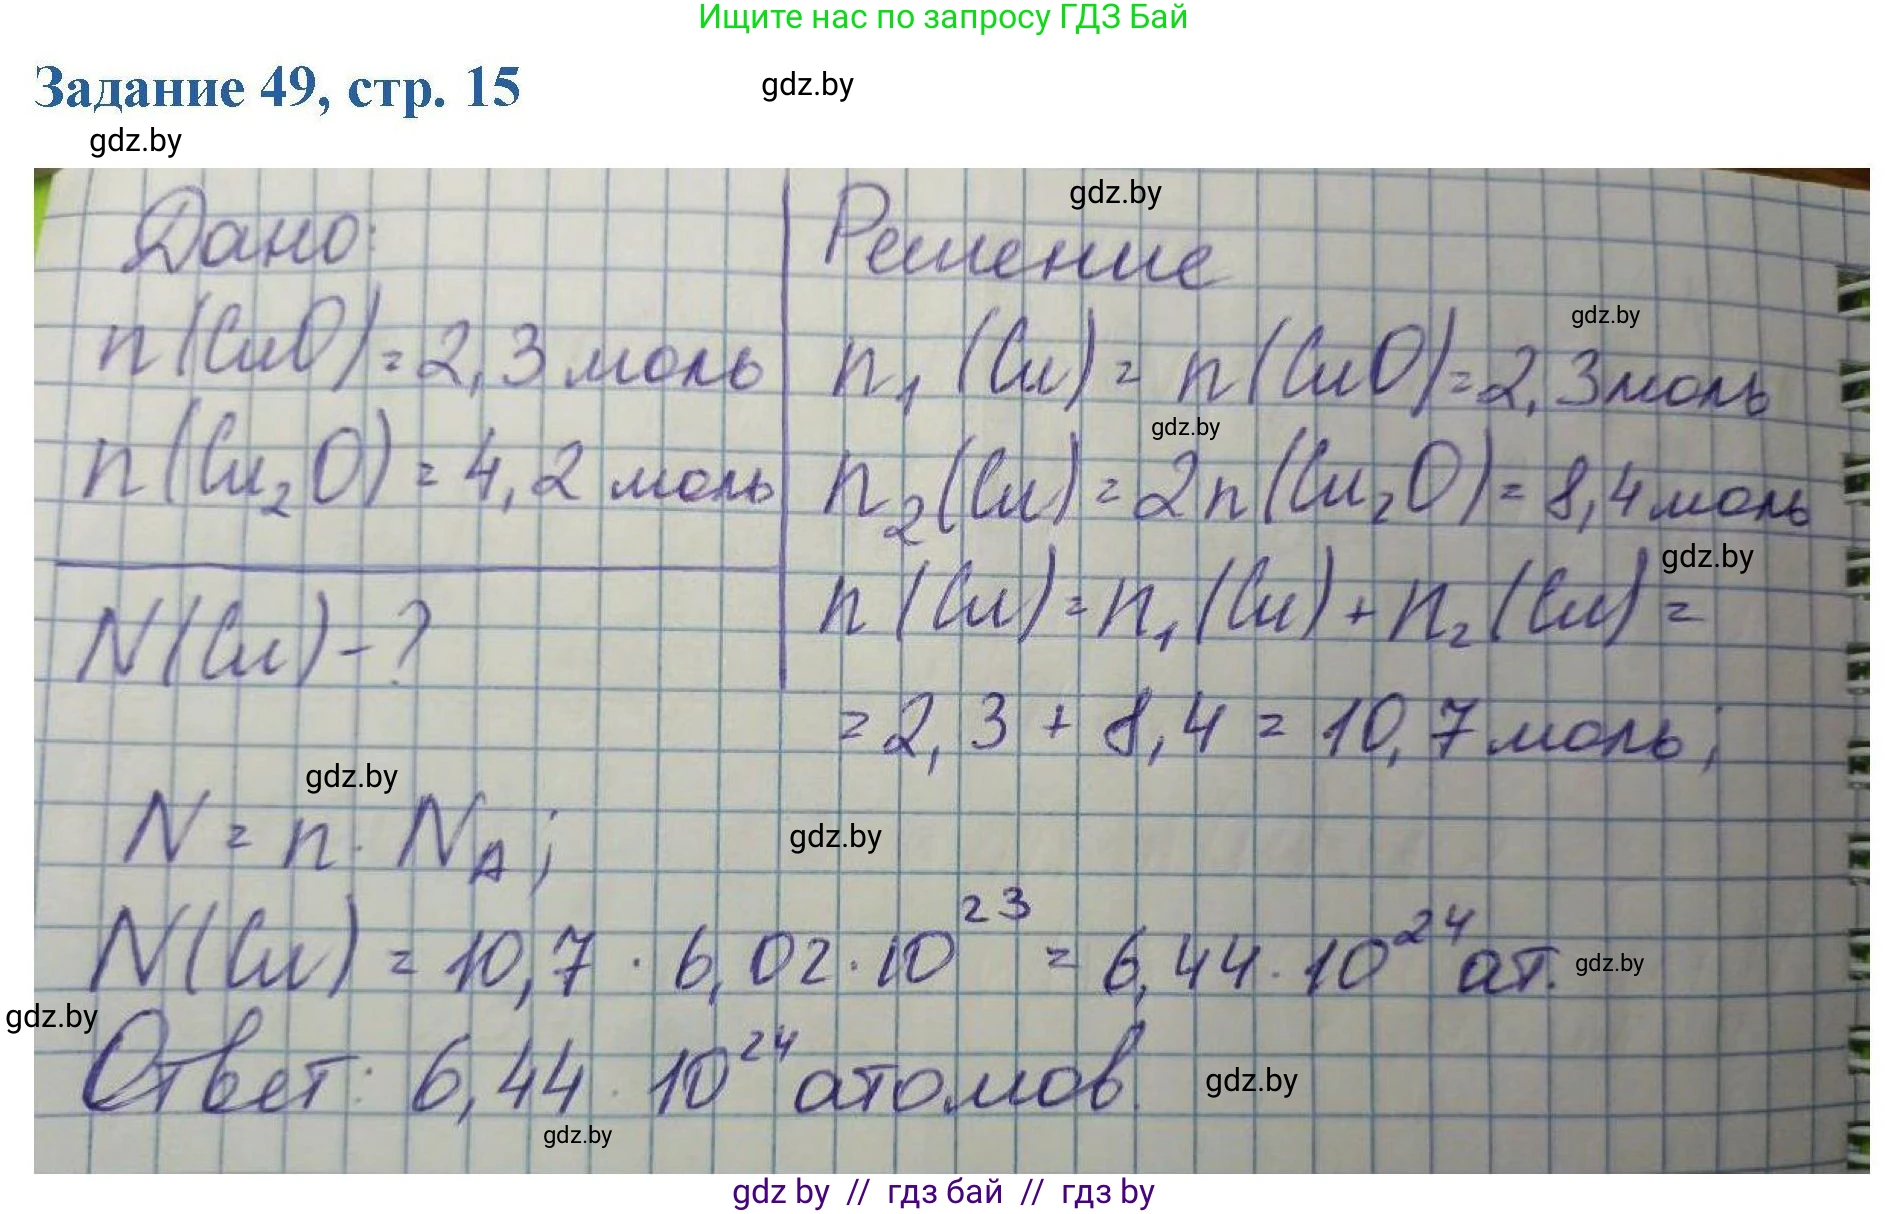 Ищите нас по запросу ГДЗ Бай
Задание 49, стр. 15
gdz.by
gdz.by
gdz.by
Дано:
n(CuO)=2,3 моль
n(Cu₂O)=4,2 моль
N(Cu)-?
Решение
gdz.by
n₁(Cu)= n(CuO)=2,3моль
gdz.by
n₂(Cu)=2n(Cu₂O)=8,4моль
gdz.by
n(Cu)=n₁(Cu)+n₂(Cu)=
=2,3+8,4=10,7моль;
gdz.by
N=n·N_A;
gdz.by
N(Cu)=10,7·6,02·10²³=6,44·10²⁴ат.
gdz.by
gdz.by
Ответ: 6,44·10²⁴атомов.
gdz.by
gdz.by
gdz by // гдз бай // гдз by